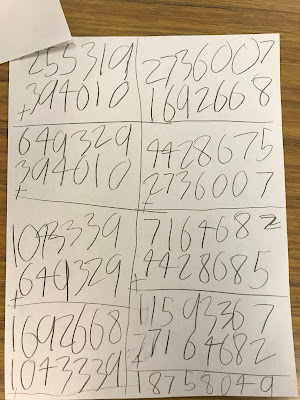 255319
+394010
649329
+394010
1043339
+649329
1692668
+1043339
2736007
1692668
4428675
+2736007
7164682
+4428685
11593367
+7164682
18758049